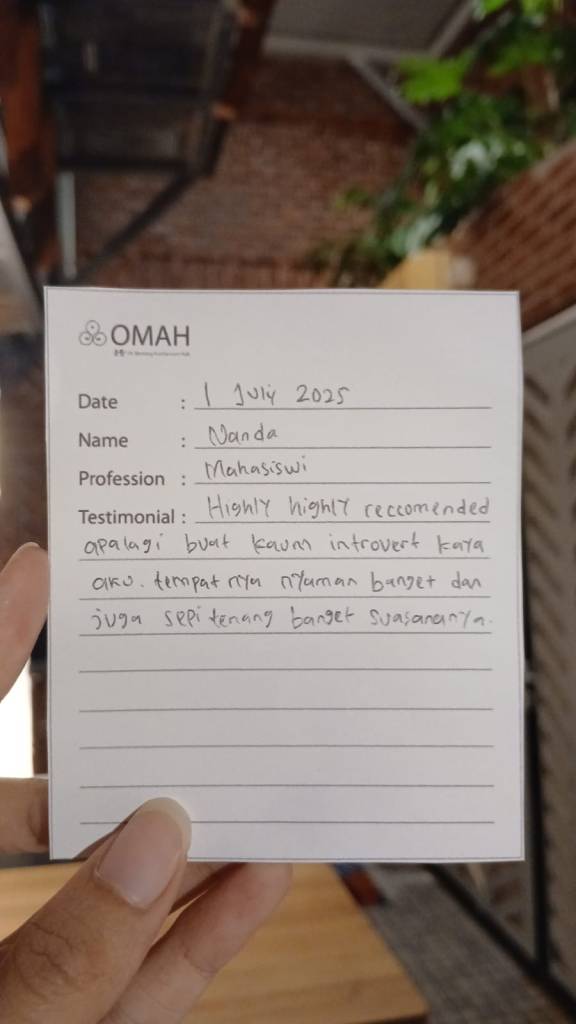 OMAH
Date : 1 July 2025
Name : Nanda
Profession : Mahasiswi
Testimonial : Highly highly reccomended
apalagi buat kaum introvert kaya
aku. tempat nya nyaman banget dan
juga sepi tenang banget suasananya.